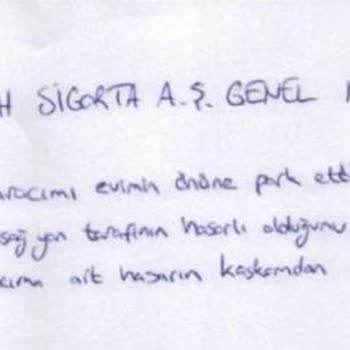 H SİGORTA A.Ş. GENEL
aracımı evimin önüne park etti
sağ yan tarafının hasarlı olduğunu
cıma ait hasarın kaskomdan